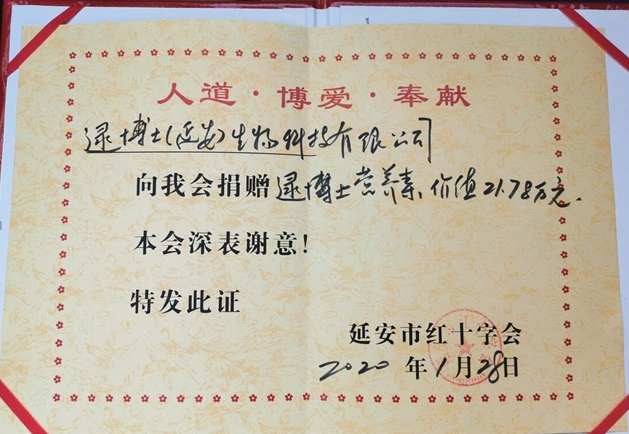 人道·博爱·奉献
逯博士(延安)生物科技有限公司
向我会捐赠逯博士营养素、价值21.78万元.
本会深表谢意!
特发此证
延安市红十字会
2020年1月28日